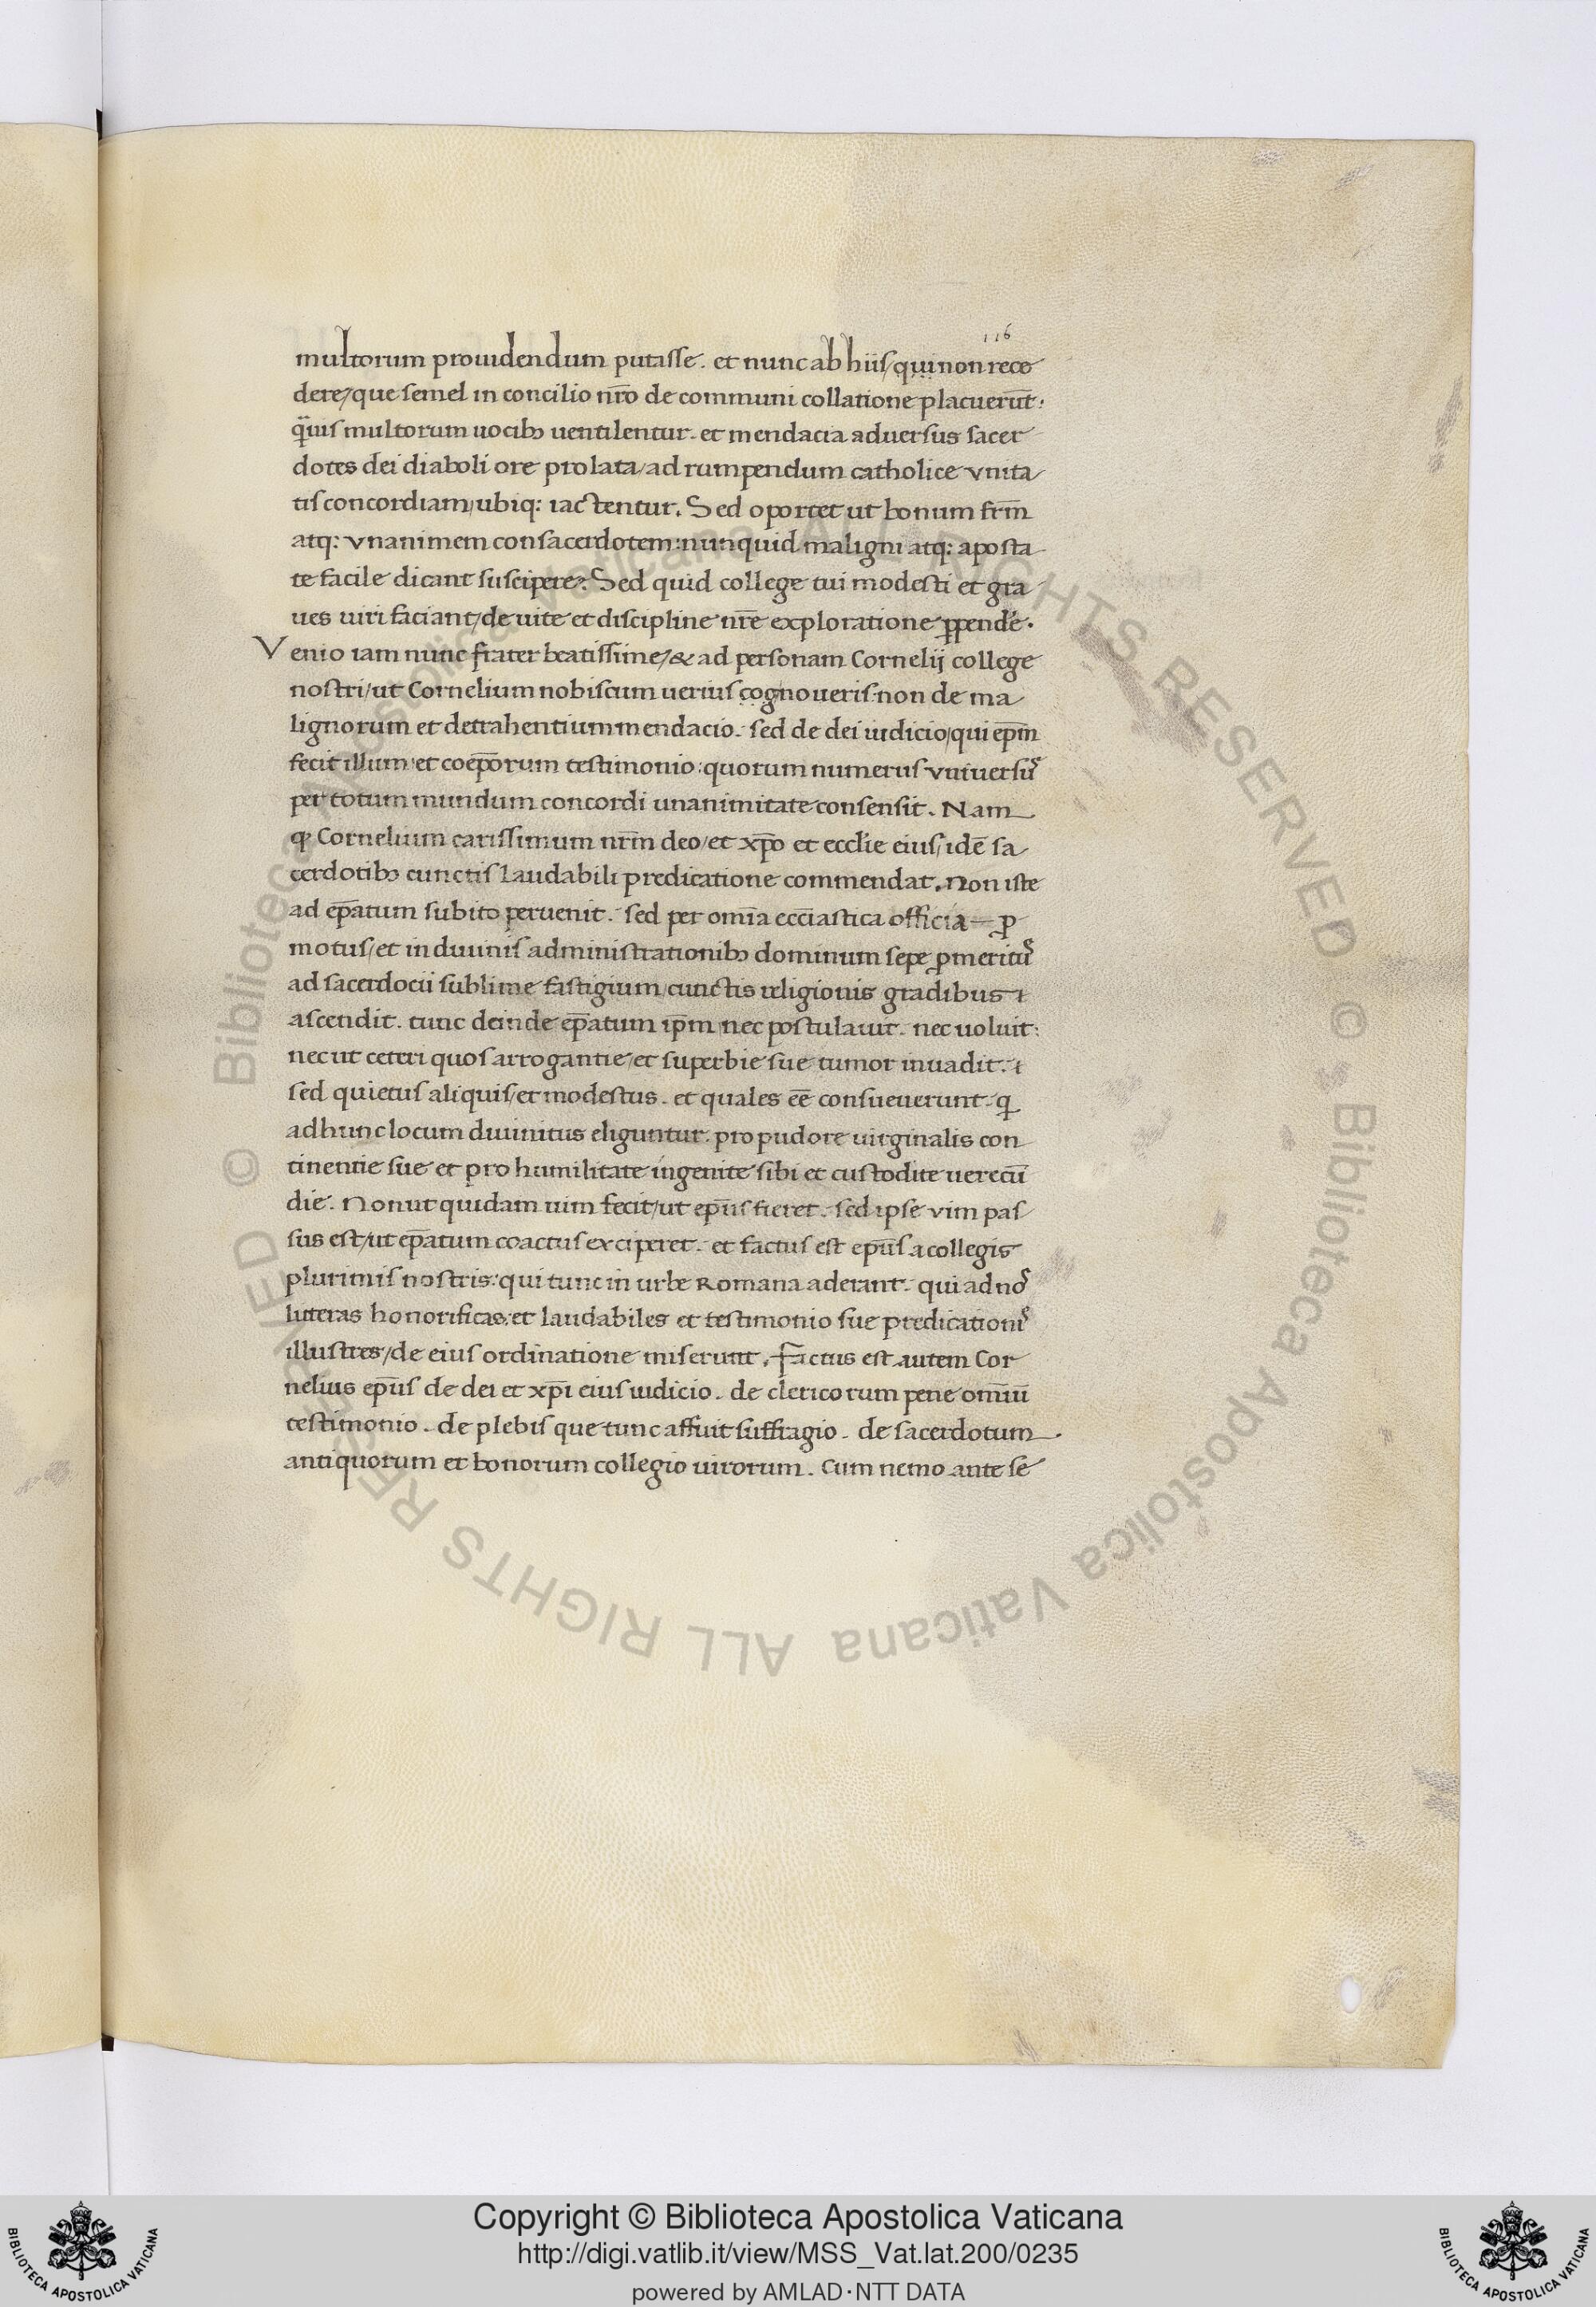 116
multorum prouidendum putasse. et nunc ab hiis/qui non rece
dere/que semel in concilio nr̄o de communi collatione placuerūt:
q̄uis multorum uocibꝫ uentilentur. et mendacia aduersus sacer
dotes dei diaboli ore prolata/ad rumpendum catholice vnita
tis concordiam/ubiq: iactentur. Sed oportet ut bonum frm̄
atq: vnanimem consacerdotem: nunquid maligni atq: aposta
te facile dicant suscipere? Sed quid college tui modesti et gra
ues uiri faciant/de uite et discipline nr̄e exploratione ꝑpendē.
Venio iam nunc frater beatissime/& ad personam Cornelij college
nostri/ut Cornelium nobiscum uerius cognoueris: non de ma
lignorum et detrahentium mendacio. sed de dei iudicio/qui ep̄m
fecit illum: et coep̄orum testimonio: quorum numerus vniuersꝰ
per totum mundum concordi unanimitate consensit. Nam
qꝫ Cornelium carissimum nrm̄ deo/et xp̄o et eccłie eius/idē sa
cerdotibꝫ cunctis laudabili predicatione commendat. Non iste
ad ep̄atum subito peruenit. sed per omīa eccīastica officia — ꝓ
motus/et in diuinis administrationibꝫ dominum sepe ꝓmeritꝰ
ad sacerdocii sublime fastigium/cunctis religionis gradibus
ascendit. tunc deinde ep̄atum ip̄m nec postulauit. nec uoluit:
nec ut ceteri quos arrogantie/et superbie sue tumor inuadit.
sed quietus aliquis/et modestus. et quales eē consueuerunt. q̇
ad hunc locum diuinitus eliguntur. pro pudore uirginalis con
tinentie sue et pro humilitate ingenite sibi et custodite uerecū
die. Non ut quidam uim fecit/ut ep̄us fieret. sed ipse vim pas
sus est/ut ep̄atum coactus exciperet. et factus est ep̄us a collegis
plurimis nostris: qui tunc in urbe Romana aderant. qui ad noˢ
litteras honorificas: et laudabiles et testimonio sue predicationiˢ
illustres/de eius ordinatione miserunt. Factus est autem Cor
nelius ep̄us de dei et xp̄i eius iudicio. de clericorum pene omīū
testimonio. de plebis que tunc affuit suffragio. de sacerdotum
antiquorum et bonorum collegio uirorum. Cum nemo ante se
© Biblioteca Apostolica Vaticana ALL RIGHTS RESERVED © Biblioteca Apostolica Vaticana ALL RIGHTS RESERVED
Copyright © Biblioteca Apostolica Vaticana
http://digi.vatlib.it/view/MSS_Vat.lat.200/0235
powered by AMLAD·NTT DATA
BIBLIOTECA APOSTOLICA VATICANA
BIBLIOTECA APOSTOLICA VATICANA